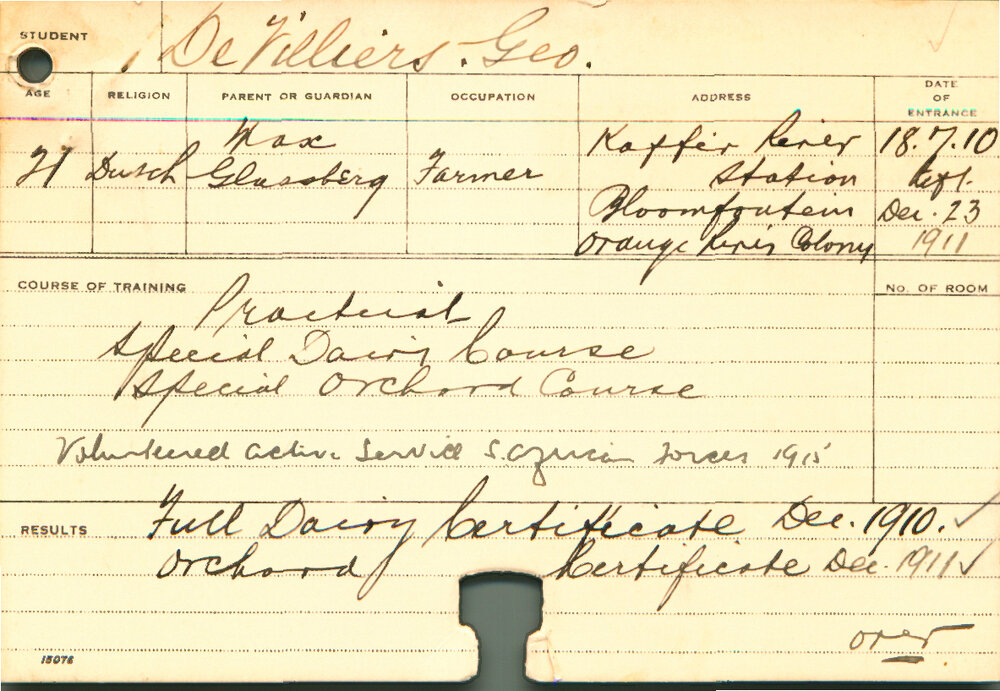 STUDENT De Villiers. Geo.
AGE RELIGION PARENT OR GUARDIAN OCCUPATION ADDRESS DATE OF ENTRANCE
21 Dutch Max Glassberg Farmer Kaffir River Station Bloomfontein Orange River Colony 18.7.10 Left Dec. 23 1911
COURSE OF TRAINING No. OF ROOM
Practical
Special Dairy Course
Special Orchard Course
Volunteered active Service S. African Forces 1915
RESULTS Full Dairy Certificate Dec. 1910. ✓
Orchard Certificate Dec. 1911 ✓
over
15076